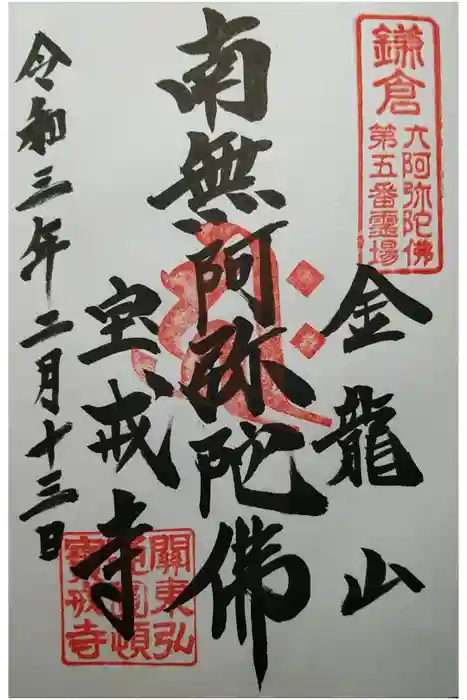 鎌倉
六阿弥陀佛
第五番霊場
金龍山
南無阿弥陀佛
宝戒寺
關東弘
通圓頓
寳戒寺
令和三年二月十三日